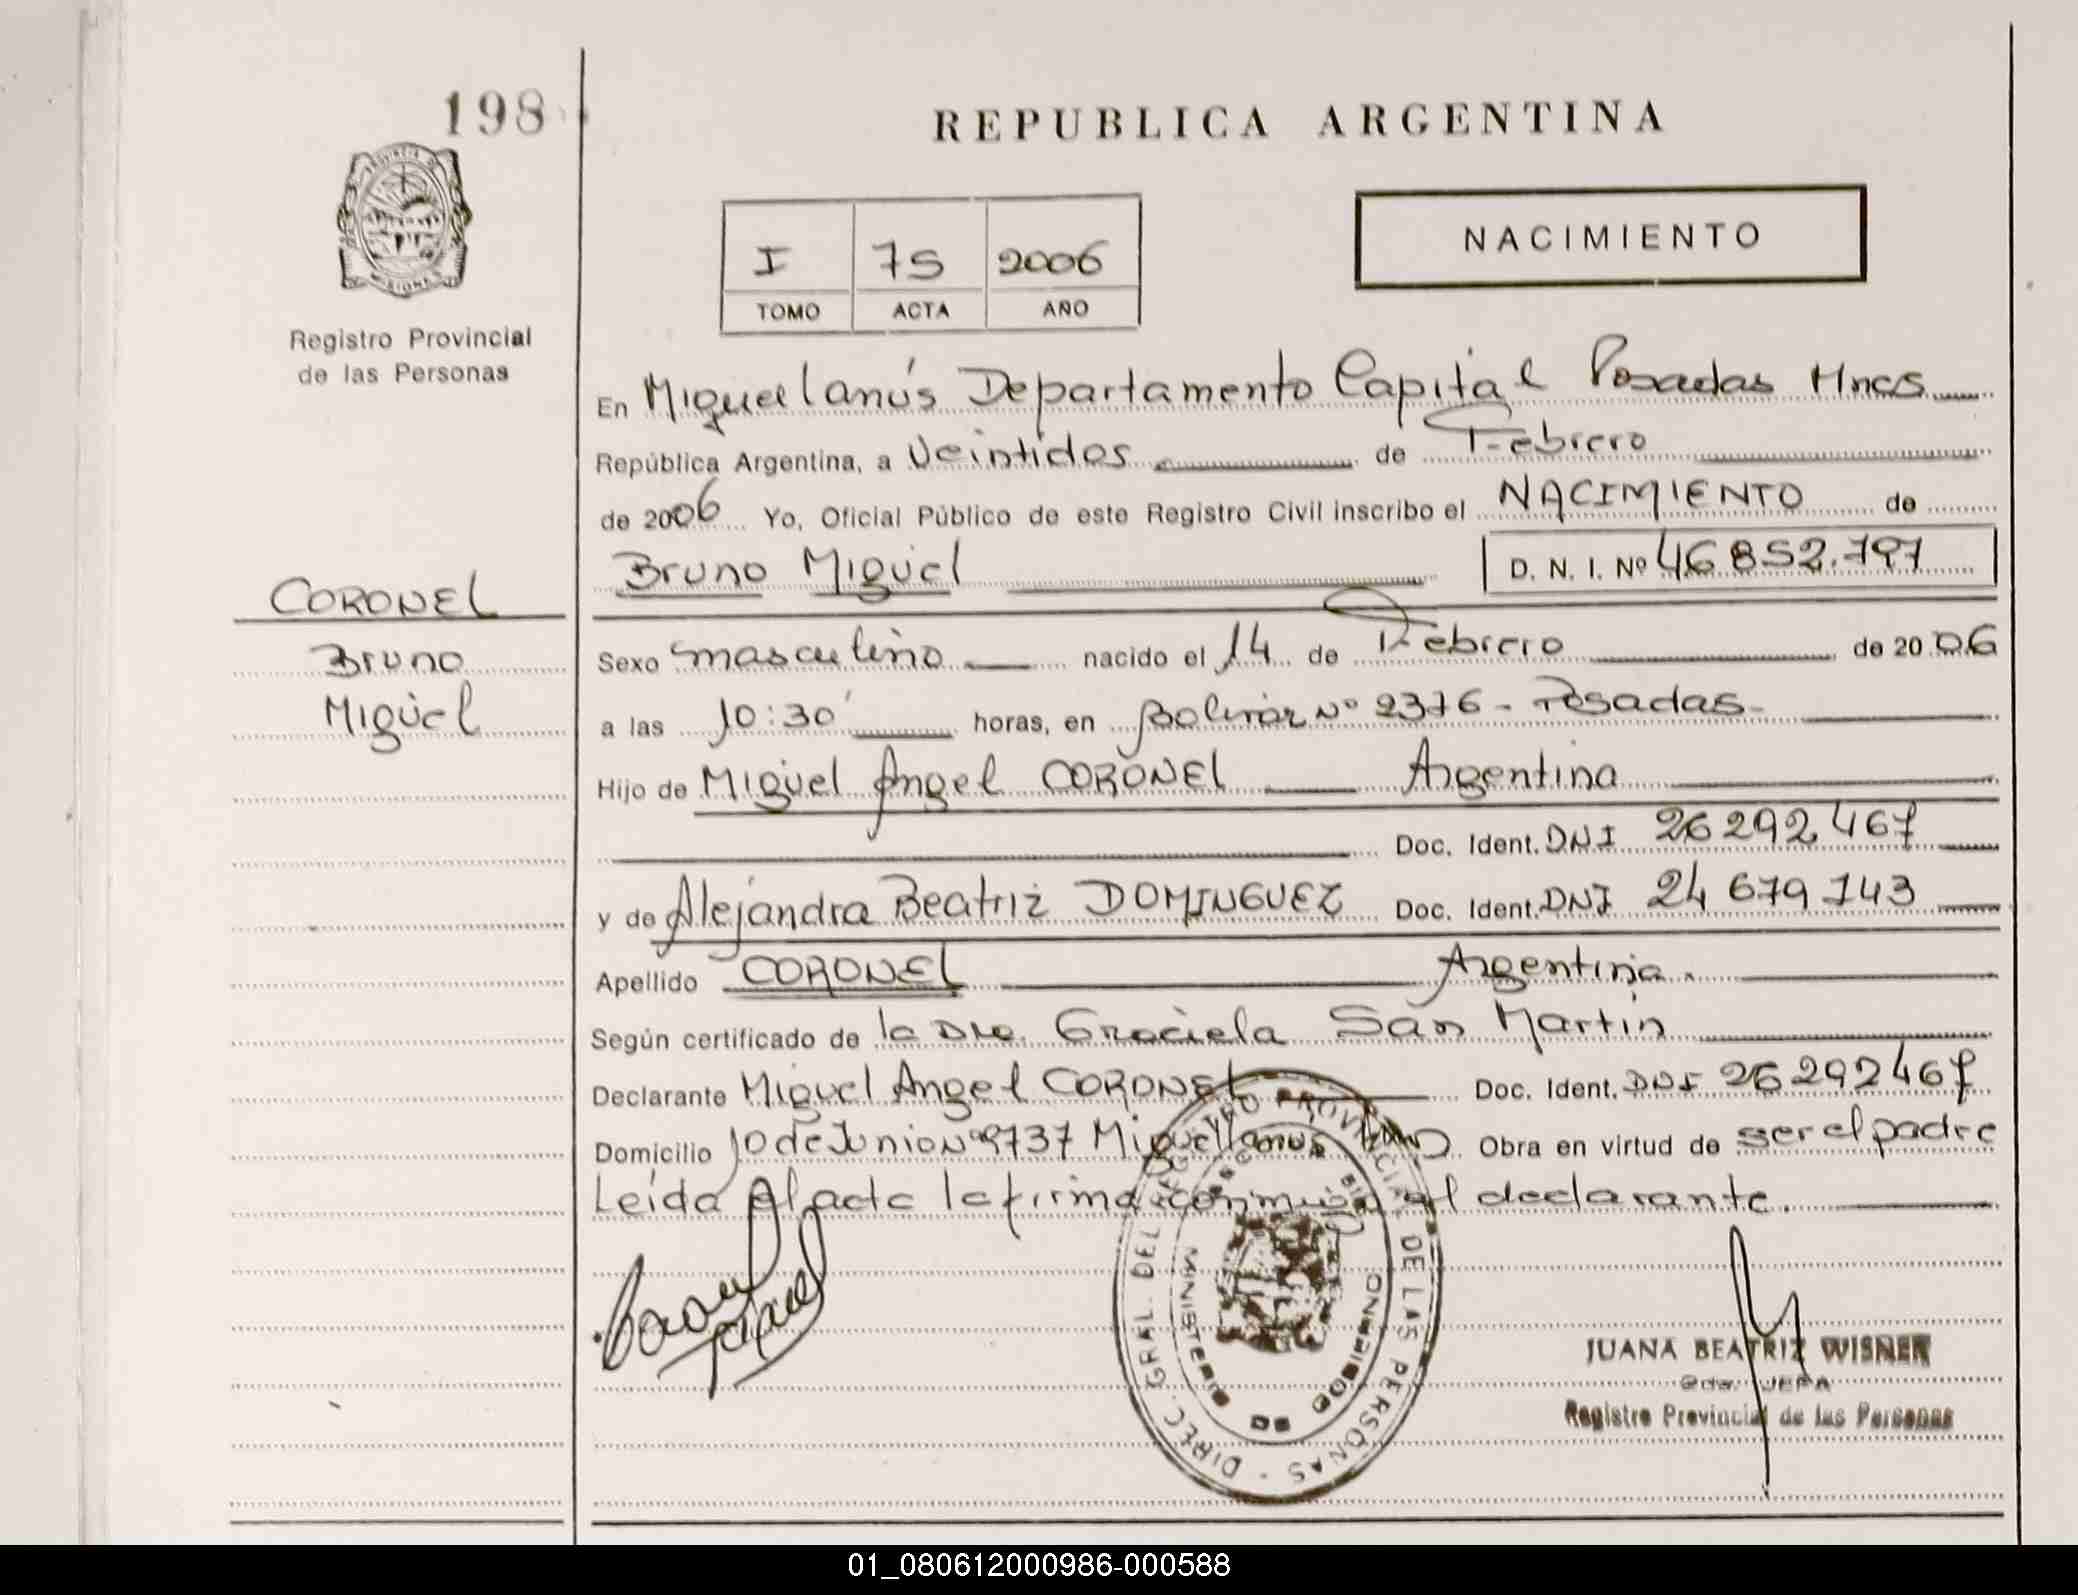 198
REPUBLICA ARGENTINA
NACIMIENTO
I 75 2006
TOMO ACTA AÑO
Registro Provincial
de las Personas
En Miguel Lanús Departamento Capital Posadas Mnes
República Argentina, a Veintidos de Febrero
de 2006 Yo, Oficial Público de este Registro Civil inscribo el NACIMIENTO de
Bruno Miguel D. N. I. Nº 46852.797
CORONEL
Bruno
Miguel
Sexo masculino nacido el 14 de Febrero de 2006
a las 10:30 horas, en Bolivar Nº 2376 - Posadas
Hijo de Miguel Angel CORONEL Argentina
Doc. Ident. DNI 26292467
y de Alejandra Beatriz DOMINGUEZ Doc. Ident. DNI 24679143
Apellido CORONEL Argentina.
Según certificado de la Dra. Graciela San Martin
Declarante Miguel Angel CORONEL Doc. Ident. DNI 26292467
Domicilio 10 de Junio Nº 9737 Miguel Lanus Obra en virtud de ser el padre
Leída el acta la firma conmigo el declarante.
DIREC. GRAL. DEL REGISTRO PROVINCIAL DE LAS PERSONAS
MINISTERIO DE GOBIERNO
JUANA BEATRIZ WISNER
JEFA
Registro Provincial de las Personas
01_080612000986-000588